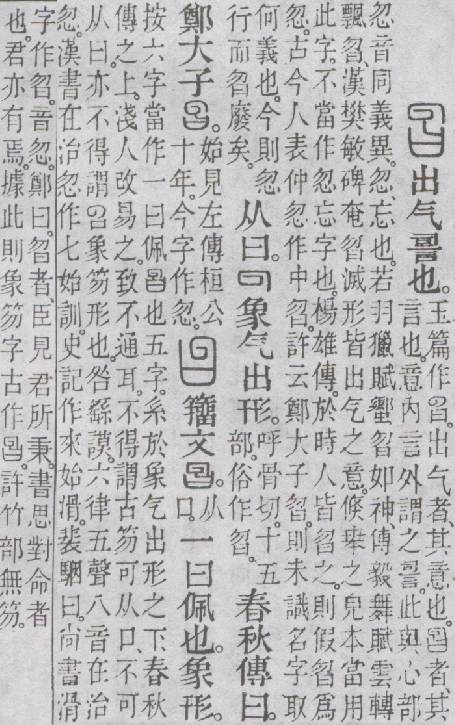 曶出气䛐也。玉篇作曶。出气者、其意也。曶者、其
言也。意內言外謂之䛐。此與心部
忽音同義異。忽、忘也。若羽獵賦蠁曶如神、傅毅舞賦雲轉
飄曶、漢樊敏碑奄曶滅形、皆出气之意。倏𠦪之皃本當用
此字。不當作忽忘字也。楊雄傳、於時人皆曶之。則假曶爲
忽。古今人表仲忽作中曶。許云鄭大子曶。則未識名字取
何義也。今則忽
行而曶廢矣。
从曰。象气出形。呼骨切。十五
部。俗作曶。
春秋傳曰。
鄭大子曶。始見左傳桓公
十年。今字作忽。
籒文曶。从
口。
一曰佩也。象形。
按六字當作一曰佩曶也五字。系於象气出形之下、春秋
傳之上。淺人改易之。致不通耳。不得謂古笏可从口、不可
从曰。亦不得謂曶象笏形也。咎繇謨。六律五聲八音在治
忽。漢書在治忽作七始訓。史記作來始滑。裴駰曰。尚書滑
字作曶。音忽。鄭曰。曶者、臣見君所秉。書思對命者
也。君亦有焉。據此則象笏字古作曶。許竹部無笏。